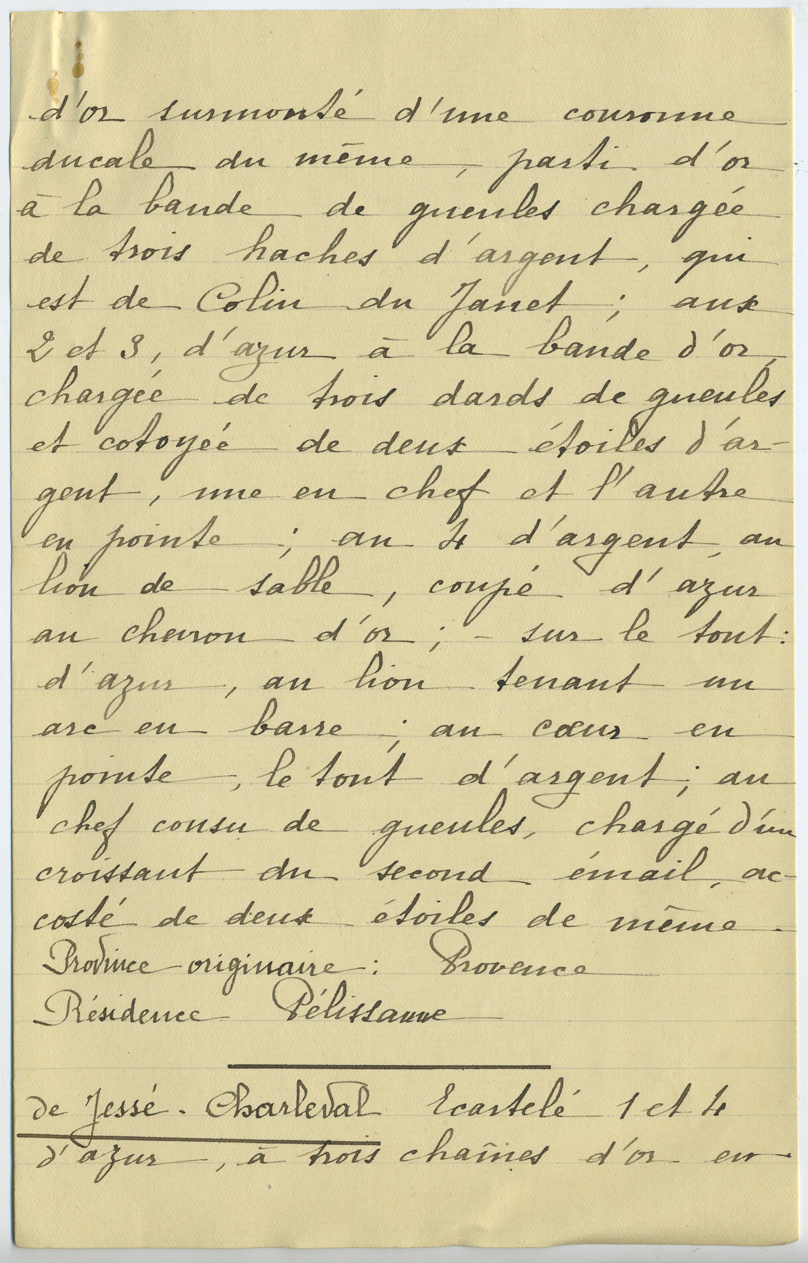 d'or surmonté d'une couronne
ducale du même, parti d'or
à la bande de gueules chargée
de trois haches d'argent, qui
est de Colin du Janet ; aux
2 et 3, d'azur à la bande d'or,
chargée de trois dards de gueules
et cotoyée de deux étoiles d'ar-
gent, une en chef et l'autre
en pointe ; au 4 d'argent au
lion de sable, coupé d'azur
au chevron d'or ; - sur le tout :
d'azur, au lion tenant un
arc en barre ; au cœur en
pointe, le tout d'argent ; au
chef cousu de gueules, chargé d'un
croissant du second émail, ac-
costé de deux étoiles de même.
Province originaire : Provence
Résidence Pélissanne
de Jessé - Charleval Ecartelé 1 et 4
d'azur, à trois chaînes d'or en